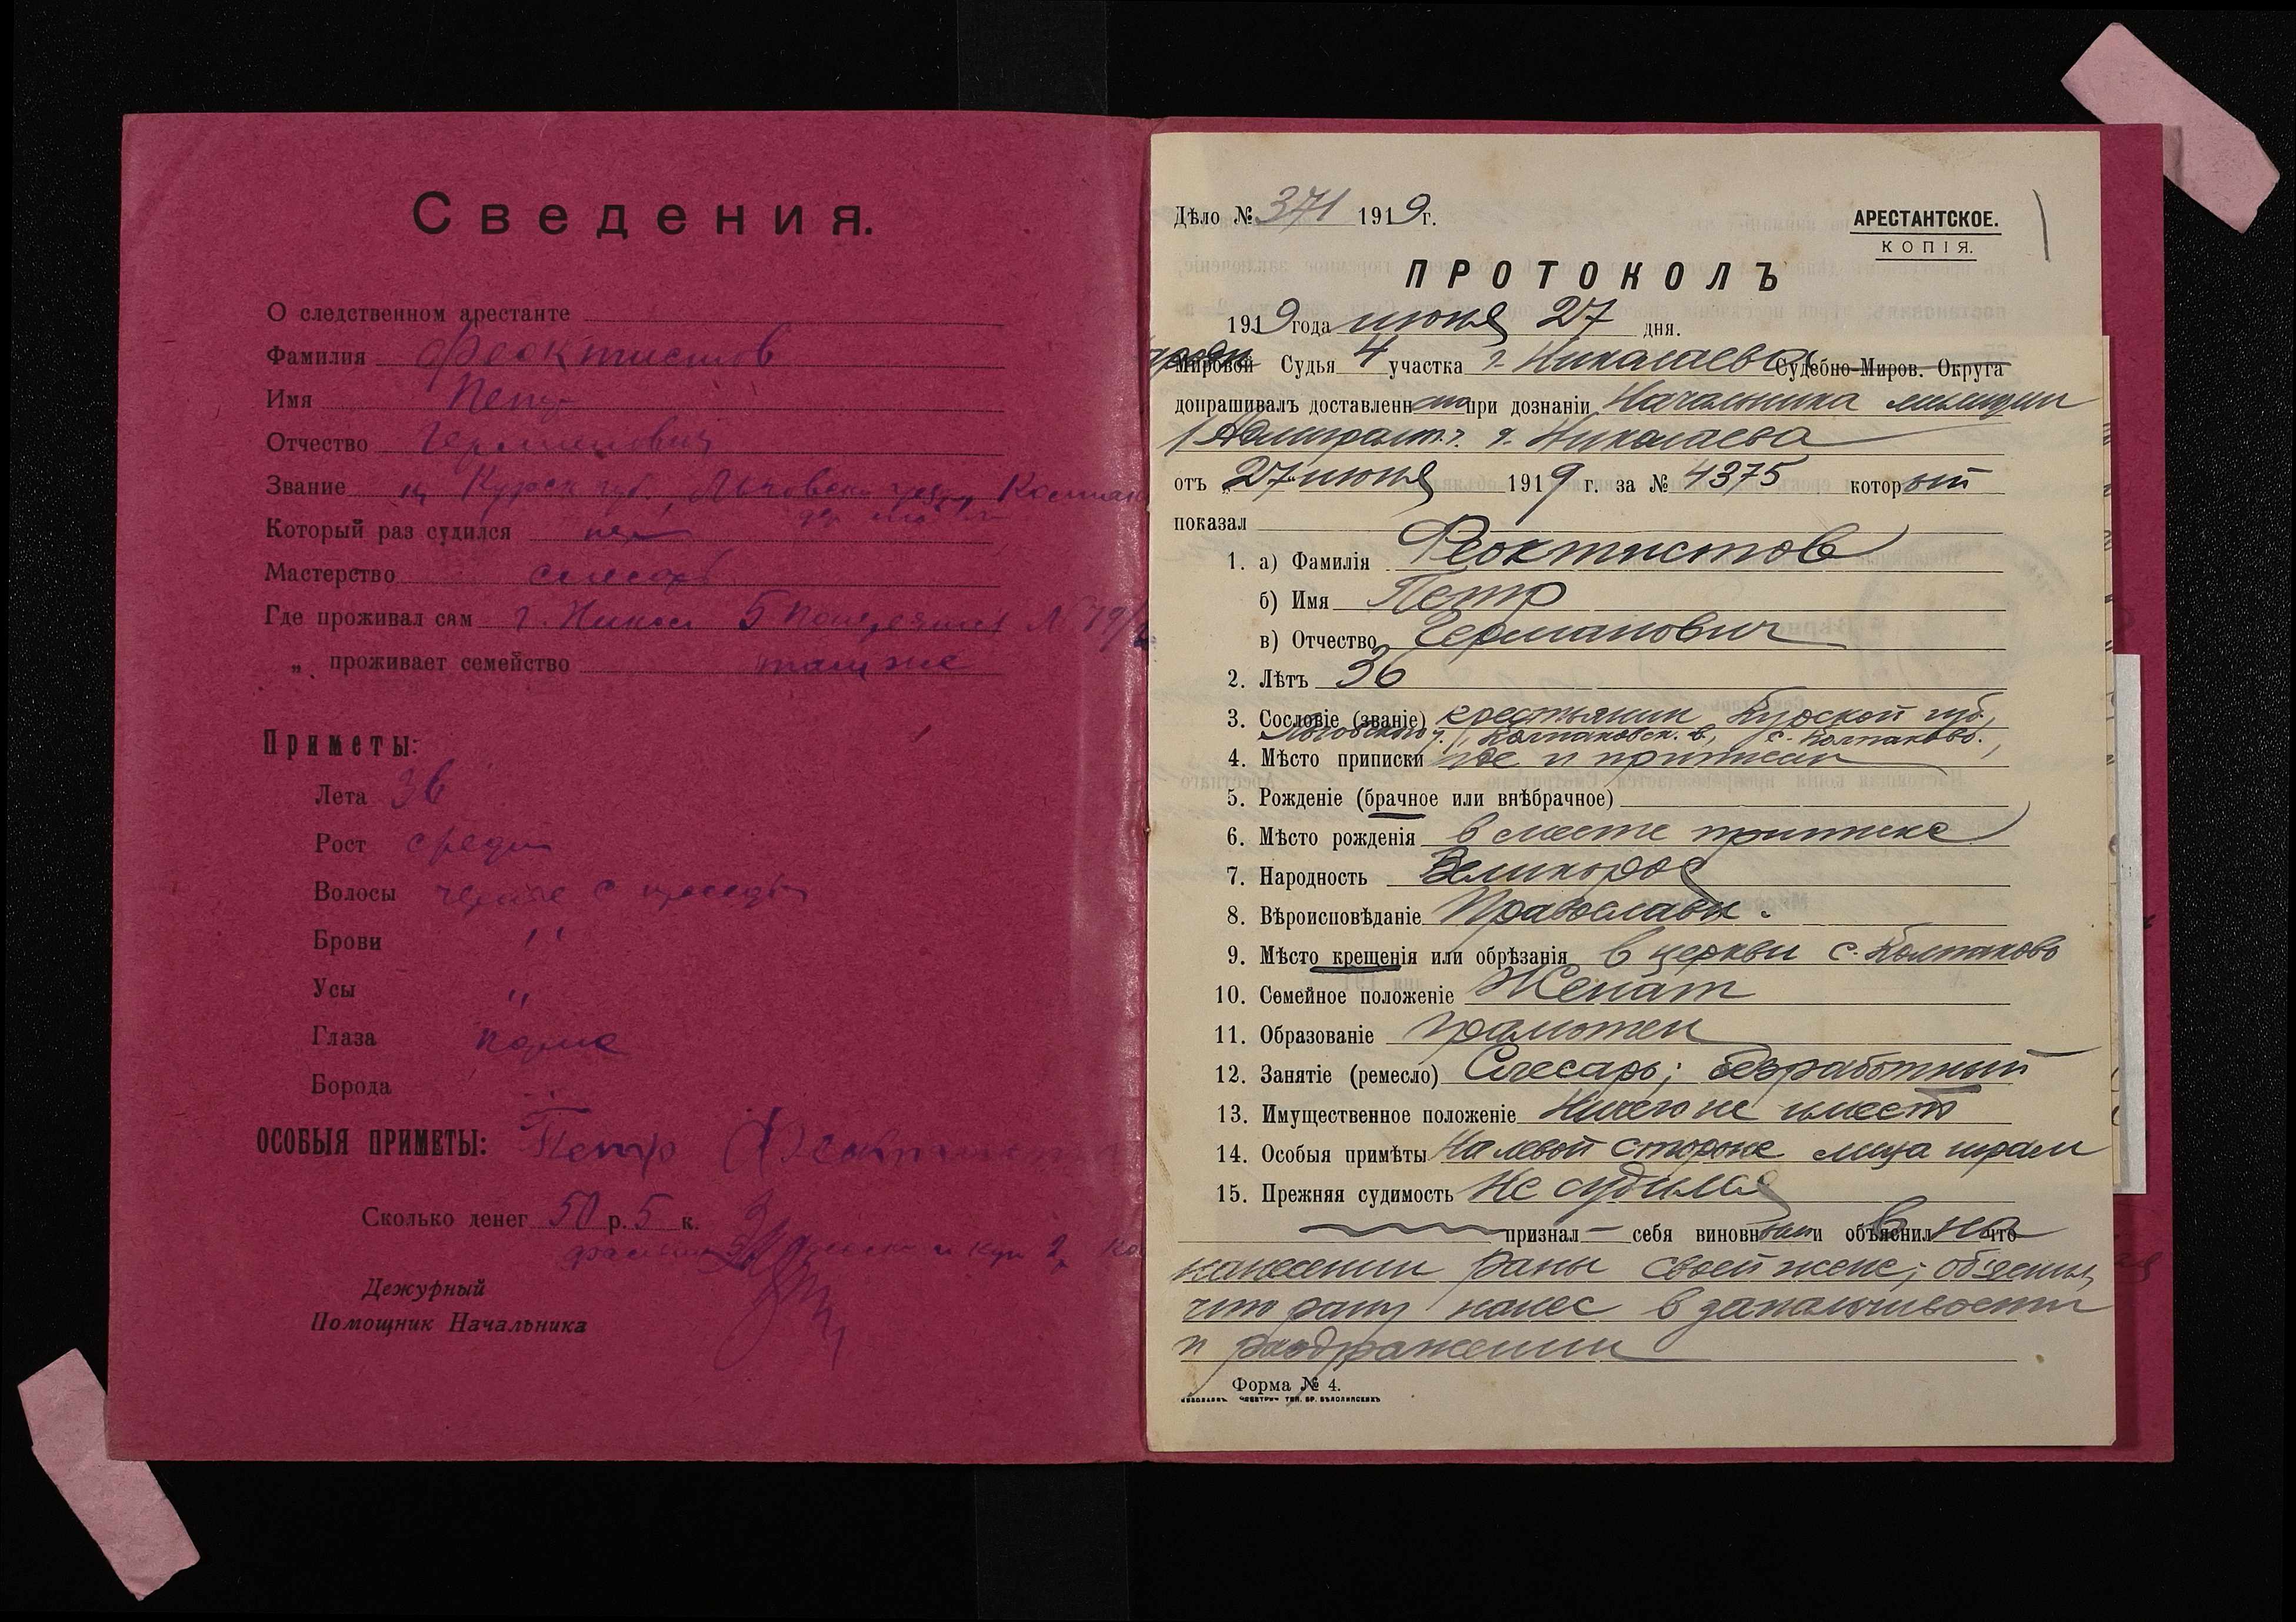 Сведения.
О следственном арестанте
Фамилия Феоктистов
Имя Петр
Отчество Германович
Звание Курск губ. Льговск уезд,
Который раз судился нет
Мастерство слесарь
Где проживал сам г. Никол 5 N 19/
„ проживает семейство там же
Приметы:
Лета 36
Рост средн
Волосы с
Брови "
Усы "
Глаза карие
Борода
ОСОБЫЯ ПРИМЕТЫ: Петр Феоктистов
Сколько денег 50 р. 5 к.
Дежурный
Помощник Начальника
Дѣло № 371 1919 г.
АРЕСТАНТСКОЕ.
КОПІЯ.
ПРОТОКОЛЪ
1919 года июня 27 дня.
Мировой Судья 4 участка г. Николаева Судебно-Миров. Округа
допрашивалъ доставленн при дознаніи Начальника милиции
1 Адмиралт. ч. г. Николаева
отъ 27 июня 1919 г. за № 4375 который
показал
1. а) Фамилія Феоктистов
б) Имя Петр
в) Отчество Германович
2. Лѣтъ 36
3. Сословіе (званіе) крестьянин Курской губ.,
Льговского у., Колпаковск. в., с. Колпаково.
4. Мѣсто приписки где и приписан
5. Рожденіе (брачное или внѣбрачное)
6. Мѣсто рожденія в месте приписке
7. Народность Великорос
8. Вѣроисповѣданіе Православн.
9. Мѣсто крещенія или обрѣзанія в церкви с. Колпаково
10. Семейное положеніе Женат
11. Образованіе грамотен
12. Занятіе (ремесло) Слесарь; безработный
13. Имущественное положеніе Ничего не имеет
14. Особыя примѣты На левой стороне лица шрам
15. Прежняя судимость Не судился
признал — себя виновным и объяснил что в на
нанесении раны своей жене; объяснил,
что рану нанес в запальчивости
и раздражении
Форма № 4.